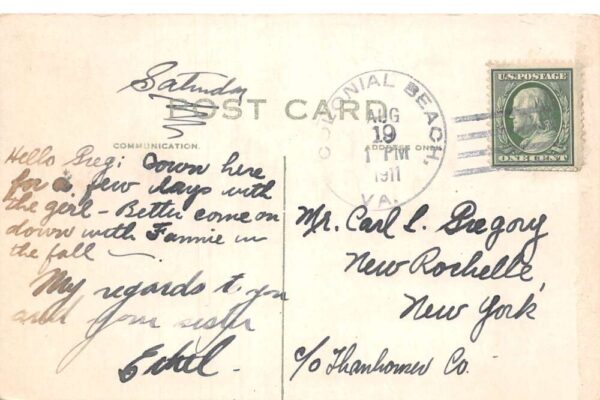 Saturday
POST CARD
COMMUNICATION.
ADDRESS ONLY
COLONIAL BEACH,
AUG
19
1 PM
1911
VA.
U.S. POSTAGE
ONE CENT
Hello Greg; Down here
for a few days with
the girl - Better come on
down with Fannie in
the fall —
My regards to you
and your sister
Ethel.
Mr. Carl L. Gregory
New Rochelle
New York
c/o Thanhouser Co.